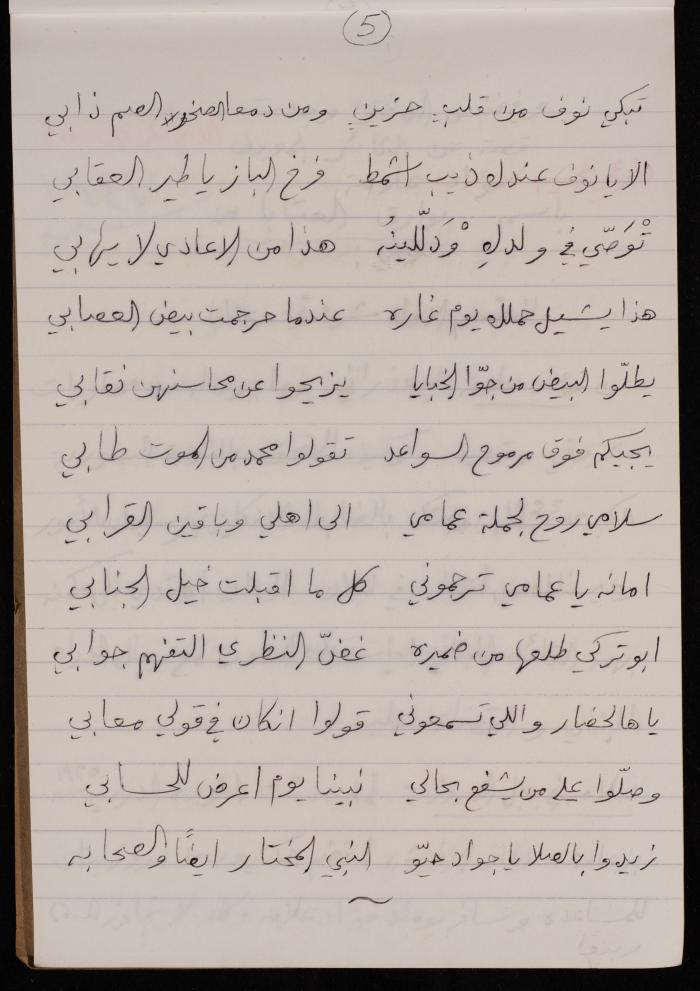 5
تبكي نوف من قلبٍ حزينٍ ومن دمعا الصخور الصم ذابي
الا يا نوف عندك ذيب اشمط فرخ الباز يا طير العقابي
تْوَصّي في ولدكِ وْدَلّلينُه هذا من الاعادي لا يهابي
هذا يشيل حملك يوم غاره عندما حرجمت بيض العصابي
يطلّوا البيض من جوّا الخبايا يزيحوا عن محاسنهن نقابي
يجيكم فوق مرموح السواعد تقولوا محمد من الموت طابي
سلامي روح لجملة عمامي الى اهلي وباقين القرابي
امانه يا عمامي ترحموني كل ما اقبلت خيل الجنابي
ابو تركي طلعها من ضميره غضّ النظري التفهم جوابي
يا هالحضار واللي تسمعوني قولوا انكان في قولي معابي
وصلّوا على من يشفع بحالي نبينا يوم اعرض للحسابي
زيدوا بالصلا يا جواد حيّو النبي المختار ايضًا والصحابه